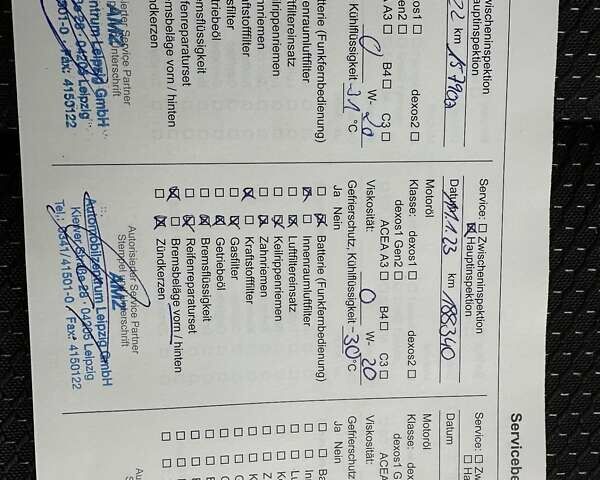 Servicebe
wischeninspektion
Hauptinspektion
22 km 157902
exos1 ☐ dexos2 ☐
Gen2 ☐
A3 ☐ B4 ☐ C3 ☐
0 W- 20
Kühlflüssigkeit -31 °C
Batterie (Funkfernbedienung)
nenraumluftfilter
ftfiltereinsatz
ilrippenriemen
ahnriemen
aftstofffilter
sfilter
triebeöl
emsflüssigkeit
eifenreparaturset
emsbeläge vorn / hinten
ndkerzen
rter Service Partner
nterschrift
AMZ
ntrum Leipzig GmbH
04205 Leipzig
01-0 Fax: 4150122
Service: ☐ Zwischeninspektion
☒ Hauptinspektion
Datum 11.1.23 km 188340
Motoröl
Klasse: dexos1 ☐ dexos2 ☐
dexos1 Gen2 ☐
ACEA A3 ☐ B4 ☐ C3 ☐
Viskosität: 0 W- 20
Gefrierschutz, Kühlflüssigkeit -30 °C
Ja Nein
☐ ☒ Batterie (Funkfernbedienung)
☒ ☐ Innenraumluftfilter
☐ ☒ Luftfiltereinsatz
☐ ☒ Keilrippenriemen
☐ ☒ Zahnriemen
☒ ☐ Kraftstofffilter
☐ ☒ Gasfilter
☐ ☒ Getriebeöl
☐ ☒ Bremsflüssigkeit
☐ ☒ Reifenreparaturset
☒ ☐ Bremsbeläge vorn / hinten
☐ ☒ Zündkerzen
Autorisierter Service Partner
Stempel Unterschrift
AMZ
Automobilzentrum Leipzig GmbH
Kiewer Straße 26 · 04205 Leipzig
Tel.: 0341/41501-0 Fax: 4150122
Service: ☐ Zw
☐ Ha
Datum
Motoröl
Klasse: de
dexos1 G
ACEA
Viskosität:
Gefrierschutz
Ja Nein
☐ ☐ Ba
☐ ☐ In
☐ ☐ Lu
☐ ☐ Ke
☐ ☐ Z
☐ ☐ K
☐ ☐ G
☐ ☐ G
☐ ☐ B
☐ ☐ R
☐ ☐ B
☐ ☐ Z
Au
S